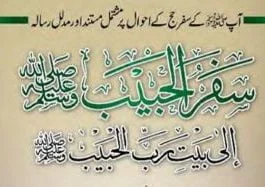 آپ ﷺ کے سفرِ حج کے احوال پر مشتمل مستند اور مدلل رسالہ
سَفَرُ الْحَبِيْب ﷺ
إِلٰى بَيْتِ رَبِّ الْحَبِيْب ﷺ